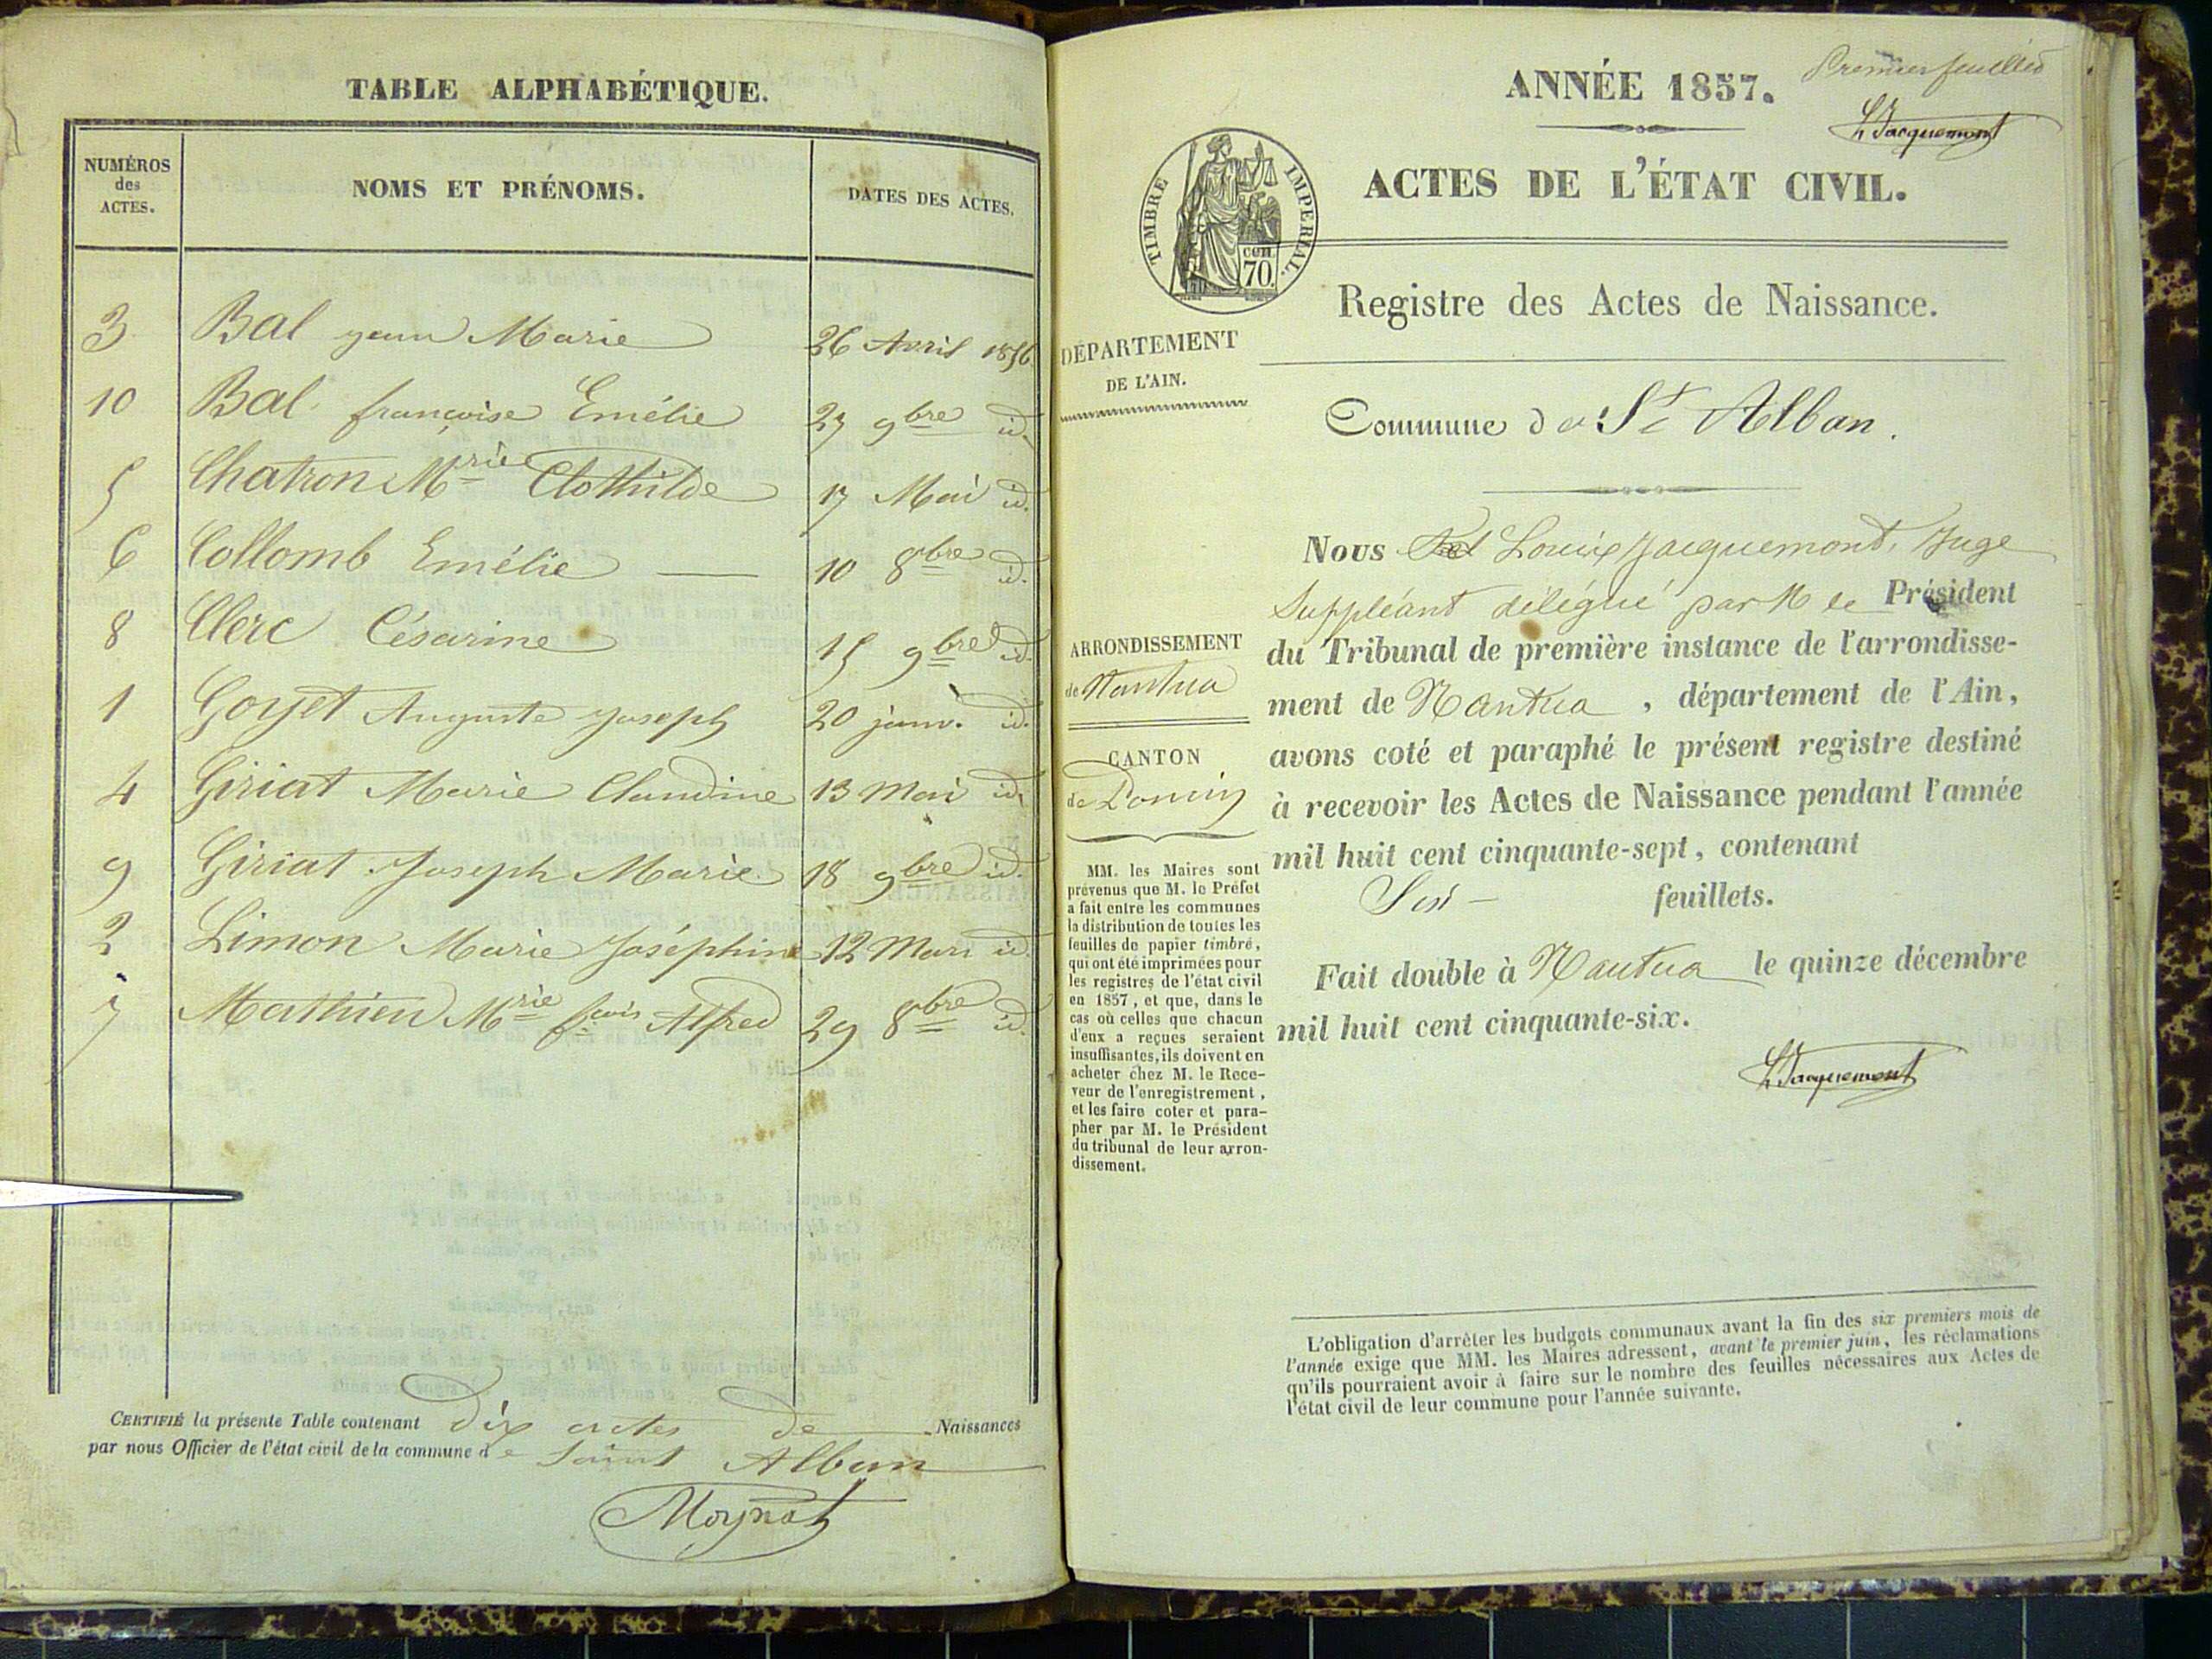 TABLE ALPHABÉTIQUE.
NUMÉROS
des
ACTES.
NOMS ET PRÉNOMS.
DATES DES ACTES.
3 Bal jean Marie 26 Avril 1856
10 Bal françoise Emélie 27 9bre id.
5 Chatron Mrie Clothilde 17 Mai id.
6 Collomb Emélie — 10 8bre id.
8 Clerc Césarine 15 9bre id.
1 Goyet Auguste joseph 20 janv. id.
4 Giriat Marie Claudine 13 Mai id.
9 Giriat Joseph Marie 18 9bre id.
2 Limon Marie Joséphine 12 Mars id.
7 Mathieu Mrie fçois Alfred 29 8bre id.
CERTIFIÉ la présente Table contenant dix actes de Naissances
par nous Officier de l'état civil de la commune de Saint Alban
Moynat
ANNÉE 1857.
Premier feuillet
L Jacquemont
ACTES DE L'ÉTAT CIVIL.
TIMBRE IMPERIAL.
CEN.
70.
Registre des Actes de Naissance.
DÉPARTEMENT
DE L'AIN.
Commune de St Alban.
ARRONDISSEMENT
de Nantua
CANTON
de Poncin
MM. les Maires sont
prévenus que M. le Préfet
a fait entre les communes
la distribution de toutes les
feuilles de papier timbré,
qui ont été imprimées pour
les registres de l'état civil
en 1857, et que, dans le
cas où celles que chacun
d'eux a reçues seraient
insuffisantes, ils doivent en
acheter chez M. le Rece-
veur de l'enregistrement,
et les faire coter et para-
pher par M. le Président
du tribunal de leur arron-
dissement.
Nous Louis Jacquemont, Juge
Suppléant délégué par M le Président
du Tribunal de première instance de l'arrondisse-
ment de Nantua, département de l'Ain,
avons coté et paraphé le présent registre destiné
à recevoir les Actes de Naissance pendant l'année
mil huit cent cinquante-sept, contenant
Six — feuillets.
Fait double à Nantua le quinze décembre
mil huit cent cinquante-six.
L Jacquemont
L'obligation d'arrêter les budgets communaux avant la fin des six premiers mois de
l'année exige que MM. les Maires adressent, avant le premier juin, les réclamations
qu'ils pourraient avoir à faire sur le nombre des feuilles nécessaires aux Actes de
l'état civil de leur commune pour l'année suivante.